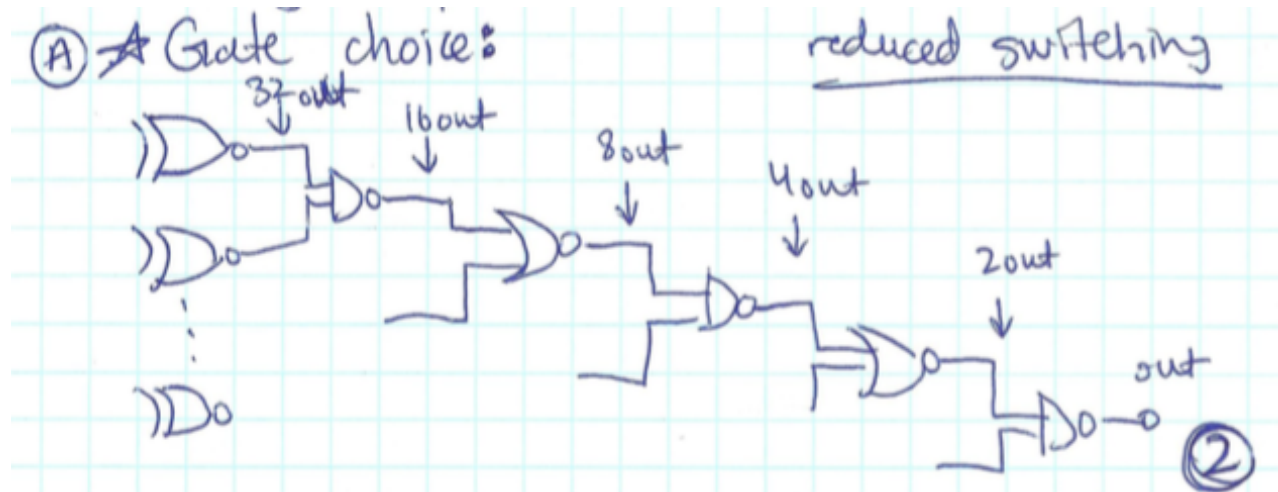 Ⓐ Gate choice:
reduced switching
32 out
16 out
8 out
4 out
2 out
out
②